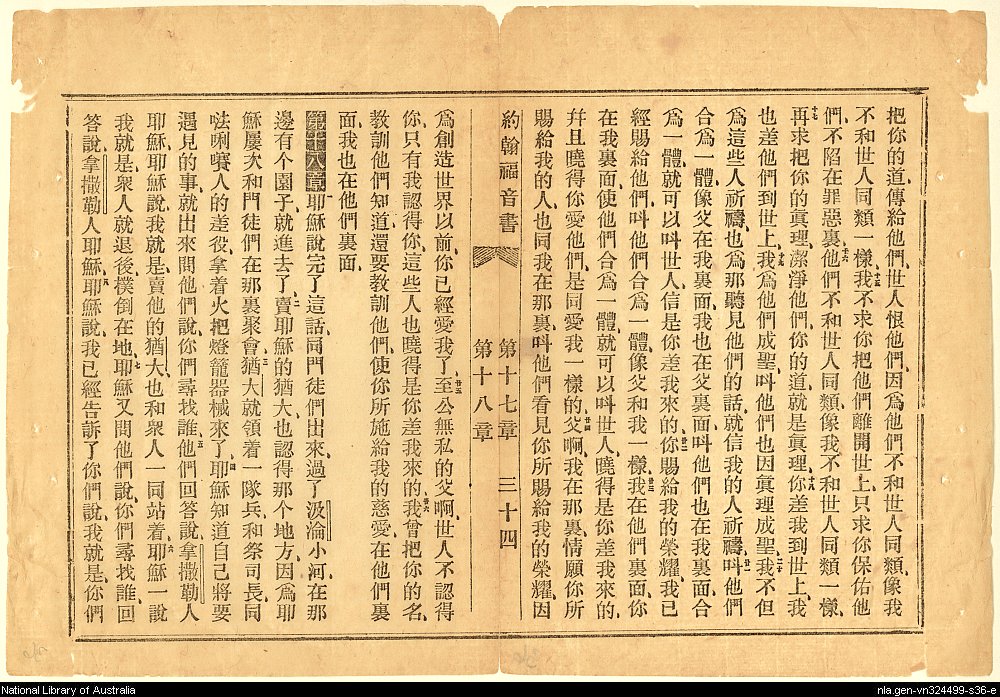 把你的道傳給他們世人恨他們因爲他們不和世人同類像我
不和世人同類一樣十五我不求你把他們離開世上只求你保佑他
們不陷在罪惡裏十六他們不和世人同類像我不和世人同類一樣
十七再求把你的眞理潔淨他們你的道就是眞理十八你差我到世上我
也差他們到世上十九我爲他們成聖叫他們也因眞理成聖二十我不但
爲這些人祈禱也爲那聽見他們的話就信我的人祈禱廿一叫他們
合爲一體像父在我裏面我也在父裏面叫他們也在我裏面合
爲一體就可以叫世人信是你差我來的廿二你賜給我的榮耀我已
經賜給他們叫他們合爲一體像父和我一樣廿三我在他們裏面你
在我裏面使他們合爲一體就可以叫世人曉得是你差我來的
幷且曉得你愛他們是同愛我一樣的廿四父啊我在那裏情願你所
賜給我的人也同我在那裏叫他們看見你所賜給我的榮耀因
約翰福音書 第十七章 三十四
第十八章
爲創造世界以前你已經愛我了廿五至公無私的父啊世人不認得
你只有我認得你這些人也曉得是你差我來的廿六我曾把你的名
敎訓他們知道還要敎訓他們使你所施給我的慈愛在他們裏
面我也在他們裏面
第十八章一耶穌說完了這話同門徒們出來過了汲淪小河在那
邊有个園子就進去了二賣耶穌的猶大也認得那个地方因爲耶
穌屢次和門徒們在那裏聚會三猶大就領着一隊兵和祭司長同
𠵽唎㘔人的差役拿着火把燈籠器械來了四耶穌知道自己將要
遇見的事就出來問他們說你們尋找誰五他們回答說拿撒勒人
耶穌耶穌說我就是賣他的猶大也和衆人一同站着六耶穌一說
我就是衆人就退後撲倒在地七耶穌又問他們說你們尋找誰回
答說拿撒勒人耶穌八耶穌說我已經告訴了你們說我就是你們
National Library of Australia
nla.gen-vn324499-s36-e